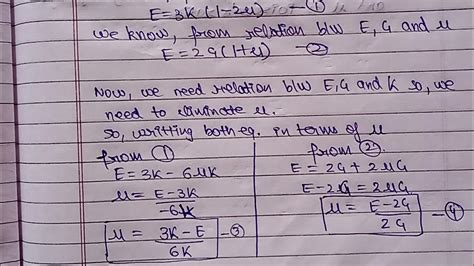 E = 3K (1-2μ) — ①
we know, from relation b/w E, G and μ
E = 2G (1+μ) — ②
Now, we need relation b/w E, G and K so, we
need to eliminate μ.
so, writting both eq. in terms of μ
from ①
E = 3K - 6μK
μ = E-3K / -6K
μ = 3K-E / 6K — ③
from ②
E = 2G + 2μG
E-2G = 2μG
μ = E-2G / 2G — ④